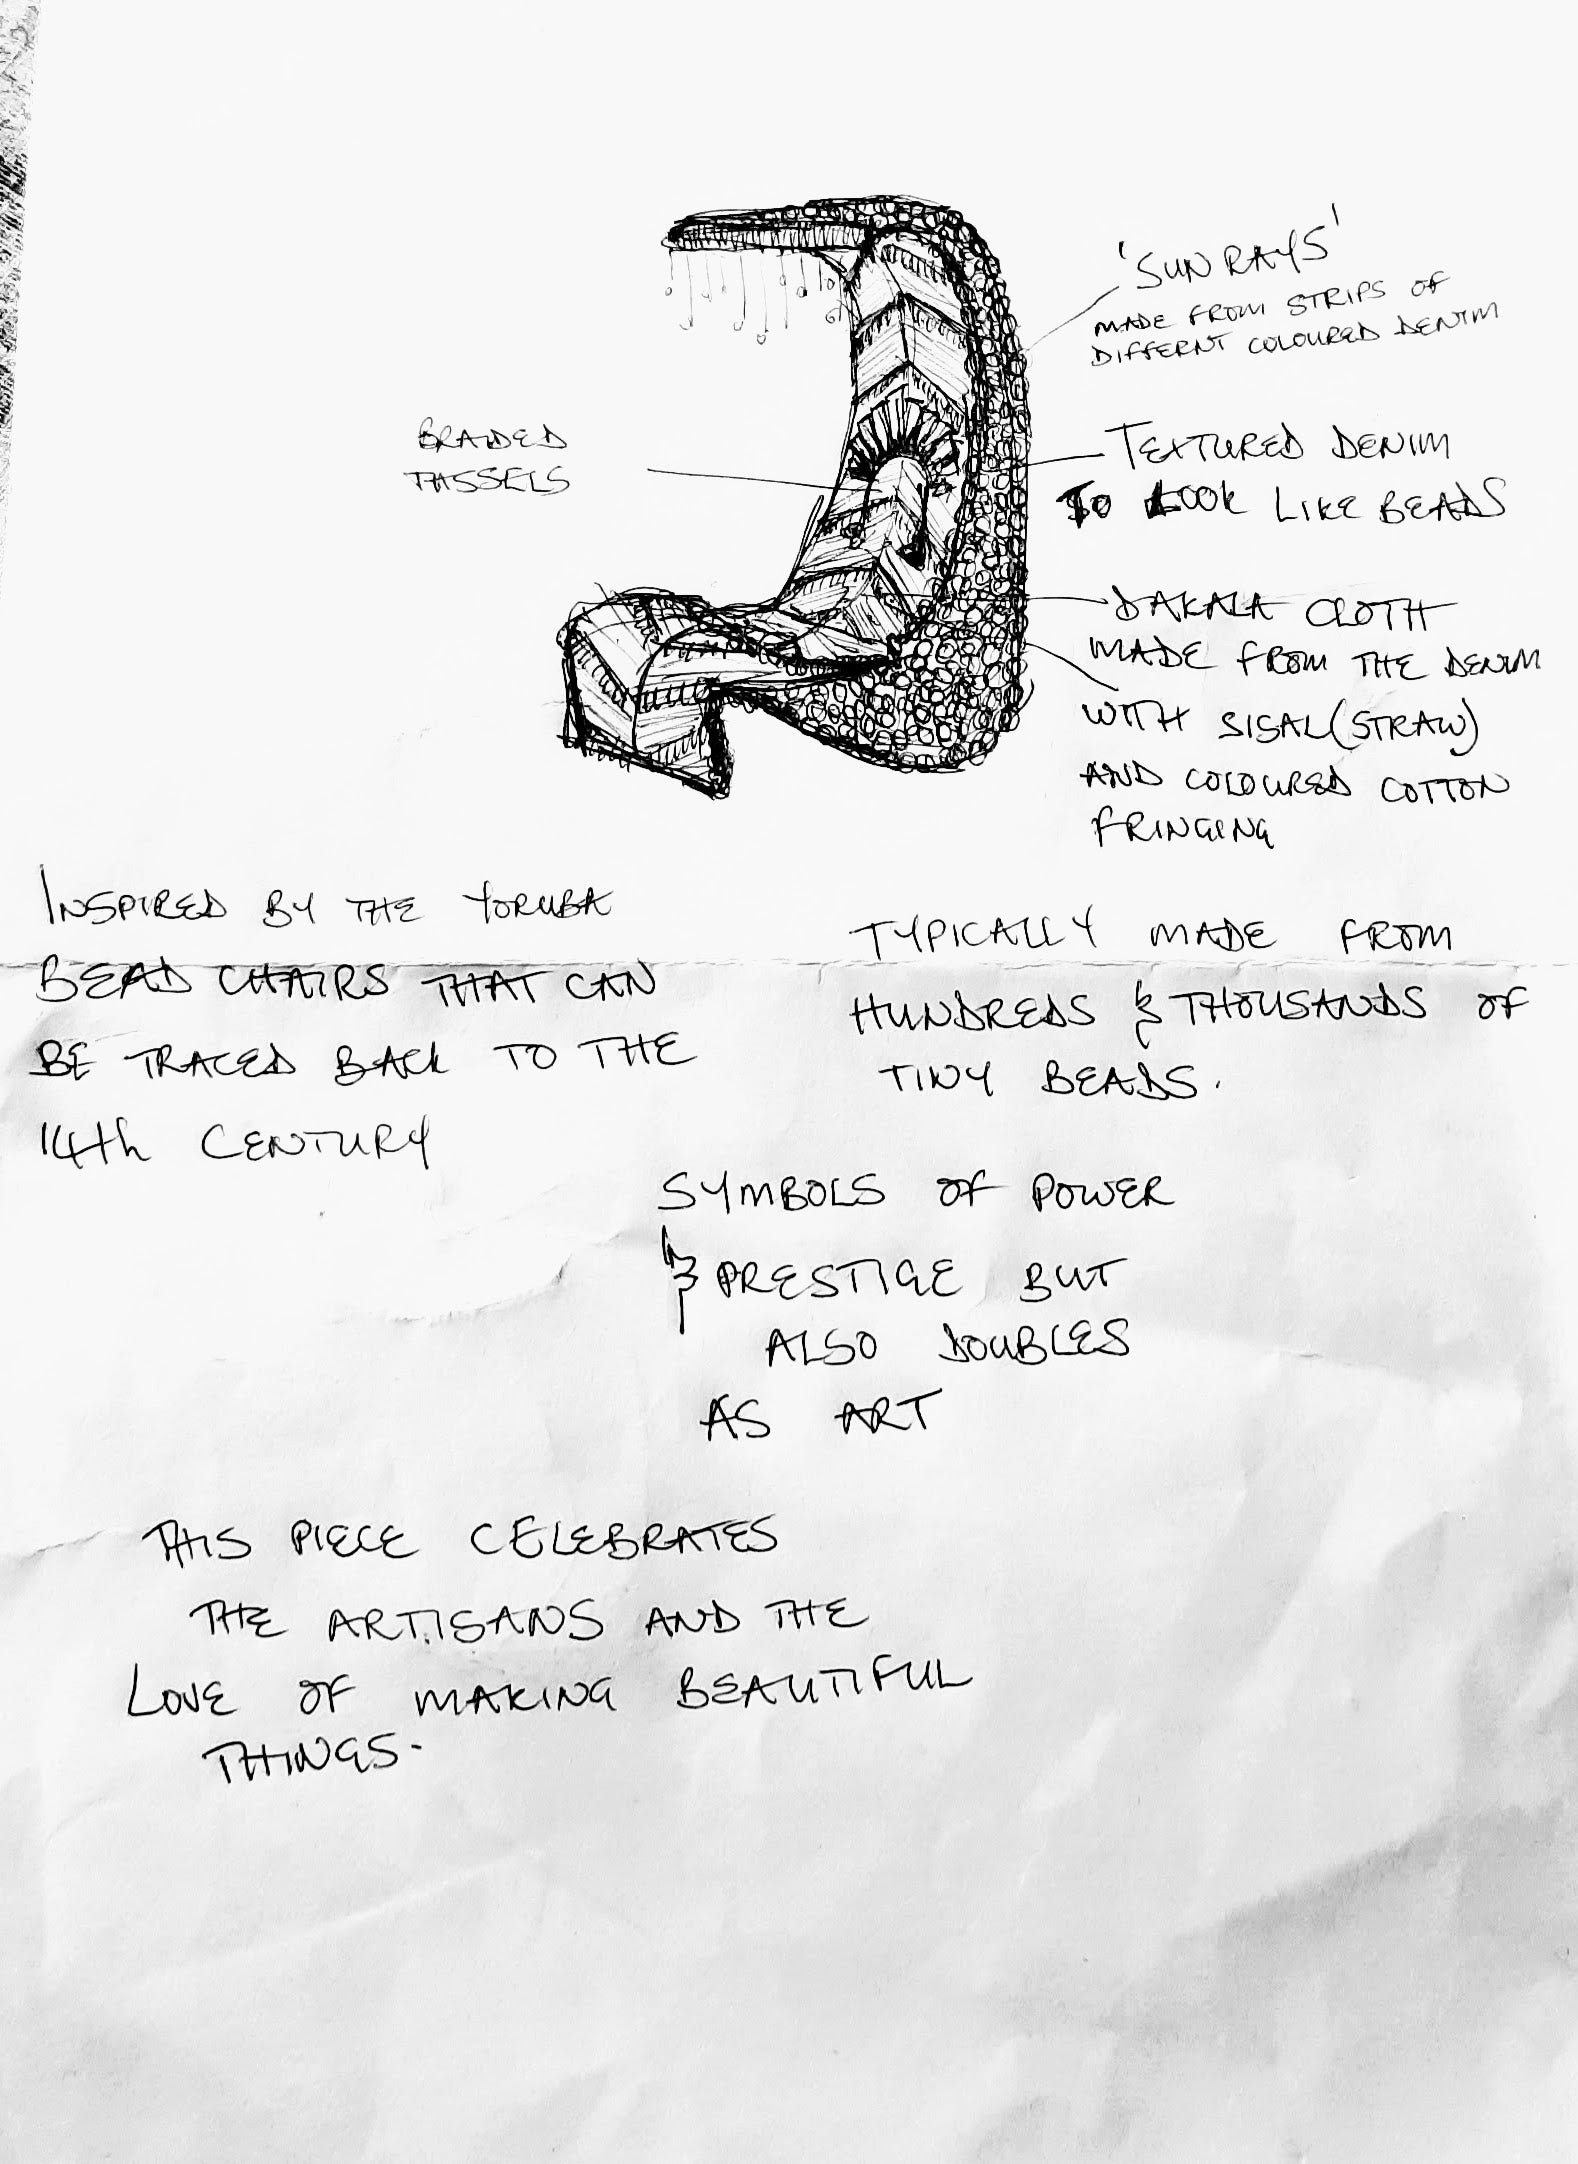 'SUN RAYS'
MADE FROM STRIPS OF
DIFFERNT COLOURED DENIM
BRAIDED
TASSELS
TEXTURED DENIM
TO LOOK LIKE BEADS
DAKALA CLOTH
MADE FROM THE DENIM
WITH SISAL (STRAW)
AND COLOURED COTTON
FRINGING
INSPIRED BY THE YORUBA
BEAD CHAIRS THAT CAN
BE TRACED BACK TO THE
14th CENTURY
TYPICALLY MADE FROM
HUNDREDS & THOUSANDS OF
TINY BEADS.
SYMBOLS OF POWER
& PRESTIGE BUT
ALSO DOUBLES
AS ART
THIS PIECE CELEBRATES
THE ARTISANS AND THE
LOVE OF MAKING BEAUTIFUL
THINGS.